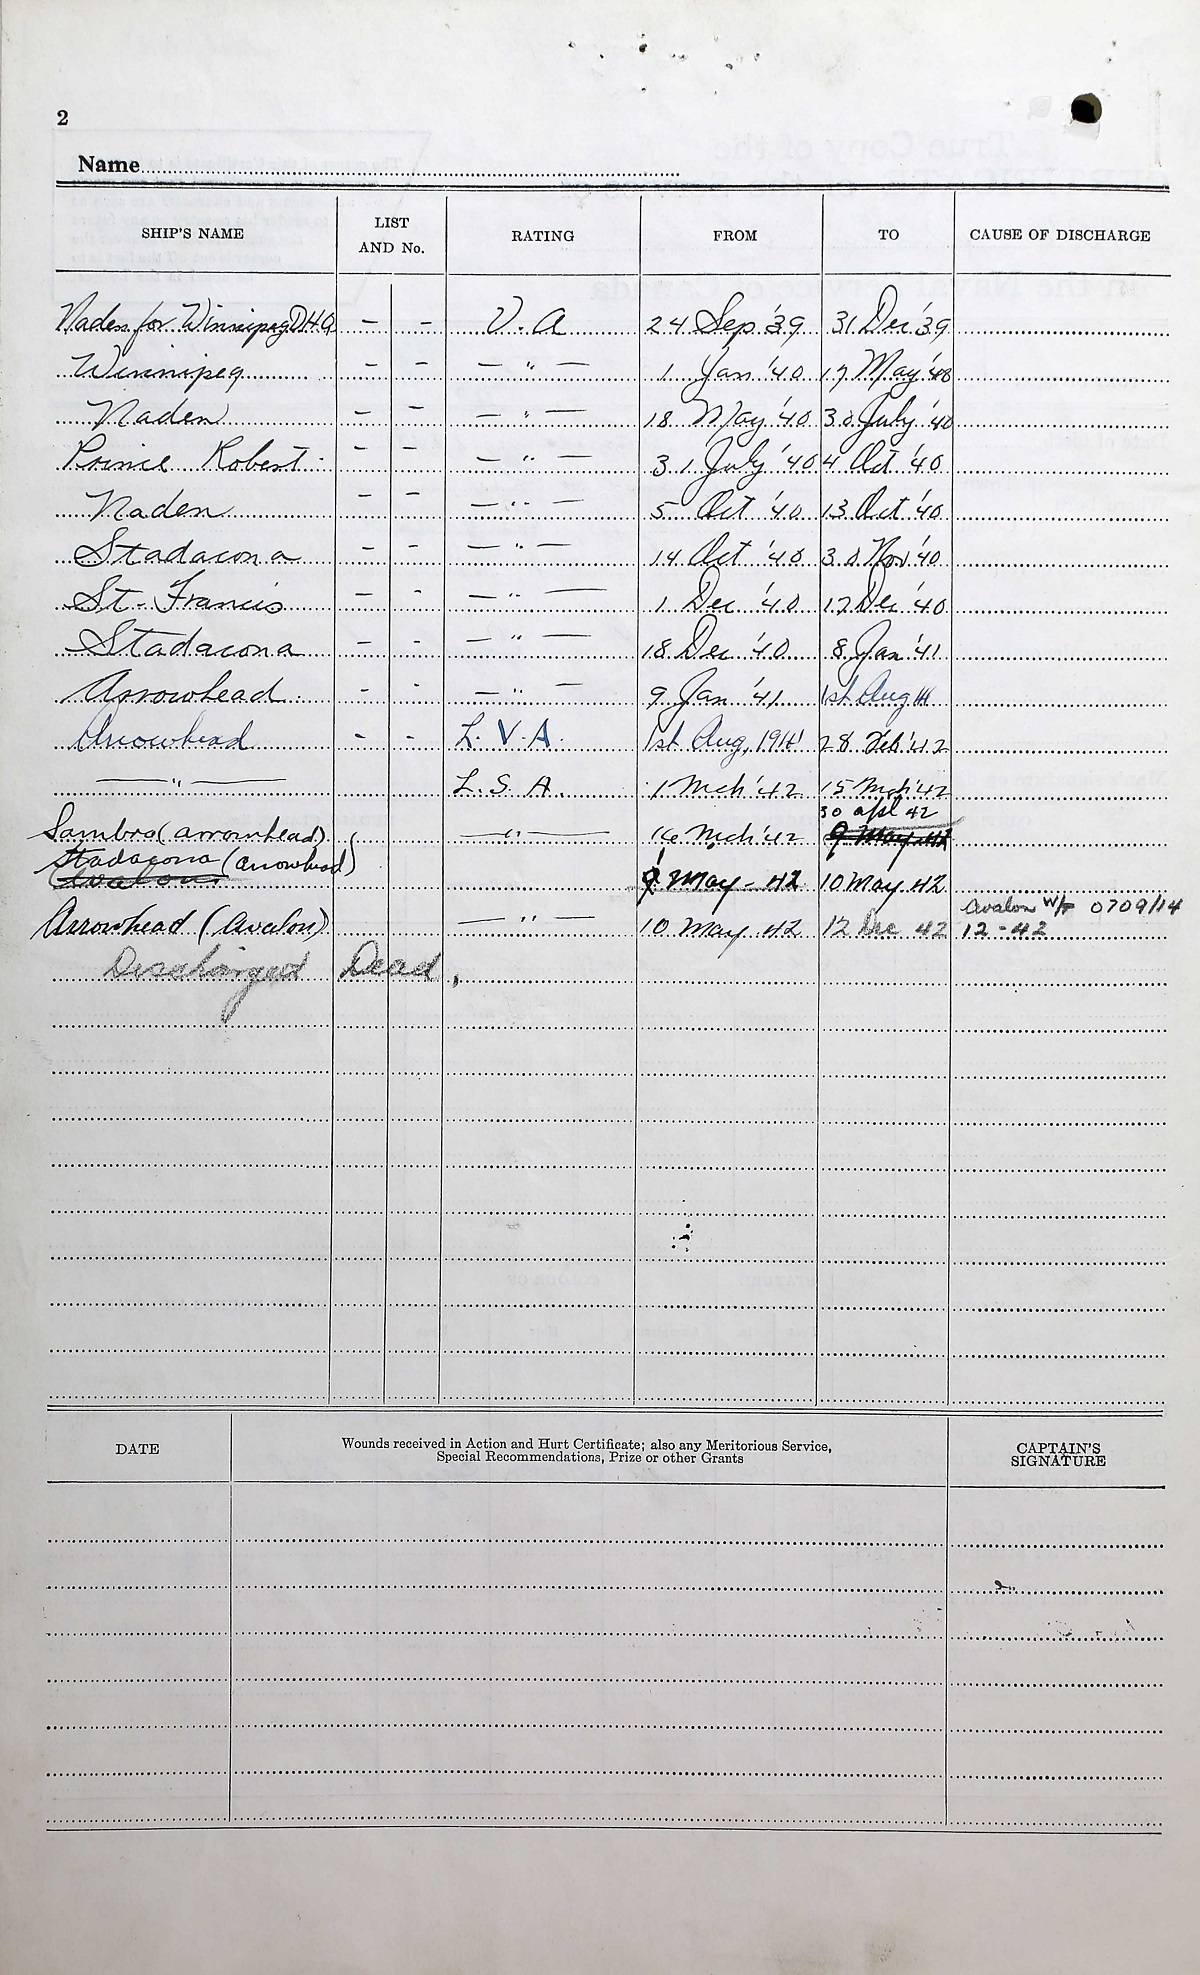 2
Name
SHIP'S NAME LIST AND No. RATING FROM TO CAUSE OF DISCHARGE
Naden for Winnipeg D.H.Q - - V. A 24 Sep '39 31 Dec '39
Winnipeg - - — " — 1 Jan '40 17 May '40
Naden - - — " — 18 May '40 30 July '40
Prince Robert - - — " — 31 July '40 4 Oct '40
Naden - - — " — 5 Oct '40 13 Oct '40
Stadacona - - — " — 14 Oct '40 30 Nov '40
St. Francis - - — " — 1 Dec '40 17 Dec '40
Stadacona - - — " — 18 Dec '40 8 Jan '41
Arrowhead - - — " — 9 Jan '41 1st Aug 41
Arrowhead - - L. V. A. 1st Aug, 1941 28 Feb '42
— " — L. S. A. 1 Mch '42 15 Mch '42
30 apl 42
Sambro (arrowhead) — " — 16 Mch '42 9 May 42
Stadacona (arrowhead)
Avalon. 9 May - 42 10 May 42
Avalon W/F 0709/14
Arrowhead (Avalon) — " — 10 May 42 12 Dec 42 12-42
Discharged Dead,
DATE Wounds received in Action and Hurt Certificate; also any Meritorious Service, CAPTAIN'S
Special Recommendations, Prize or other Grants SIGNATURE